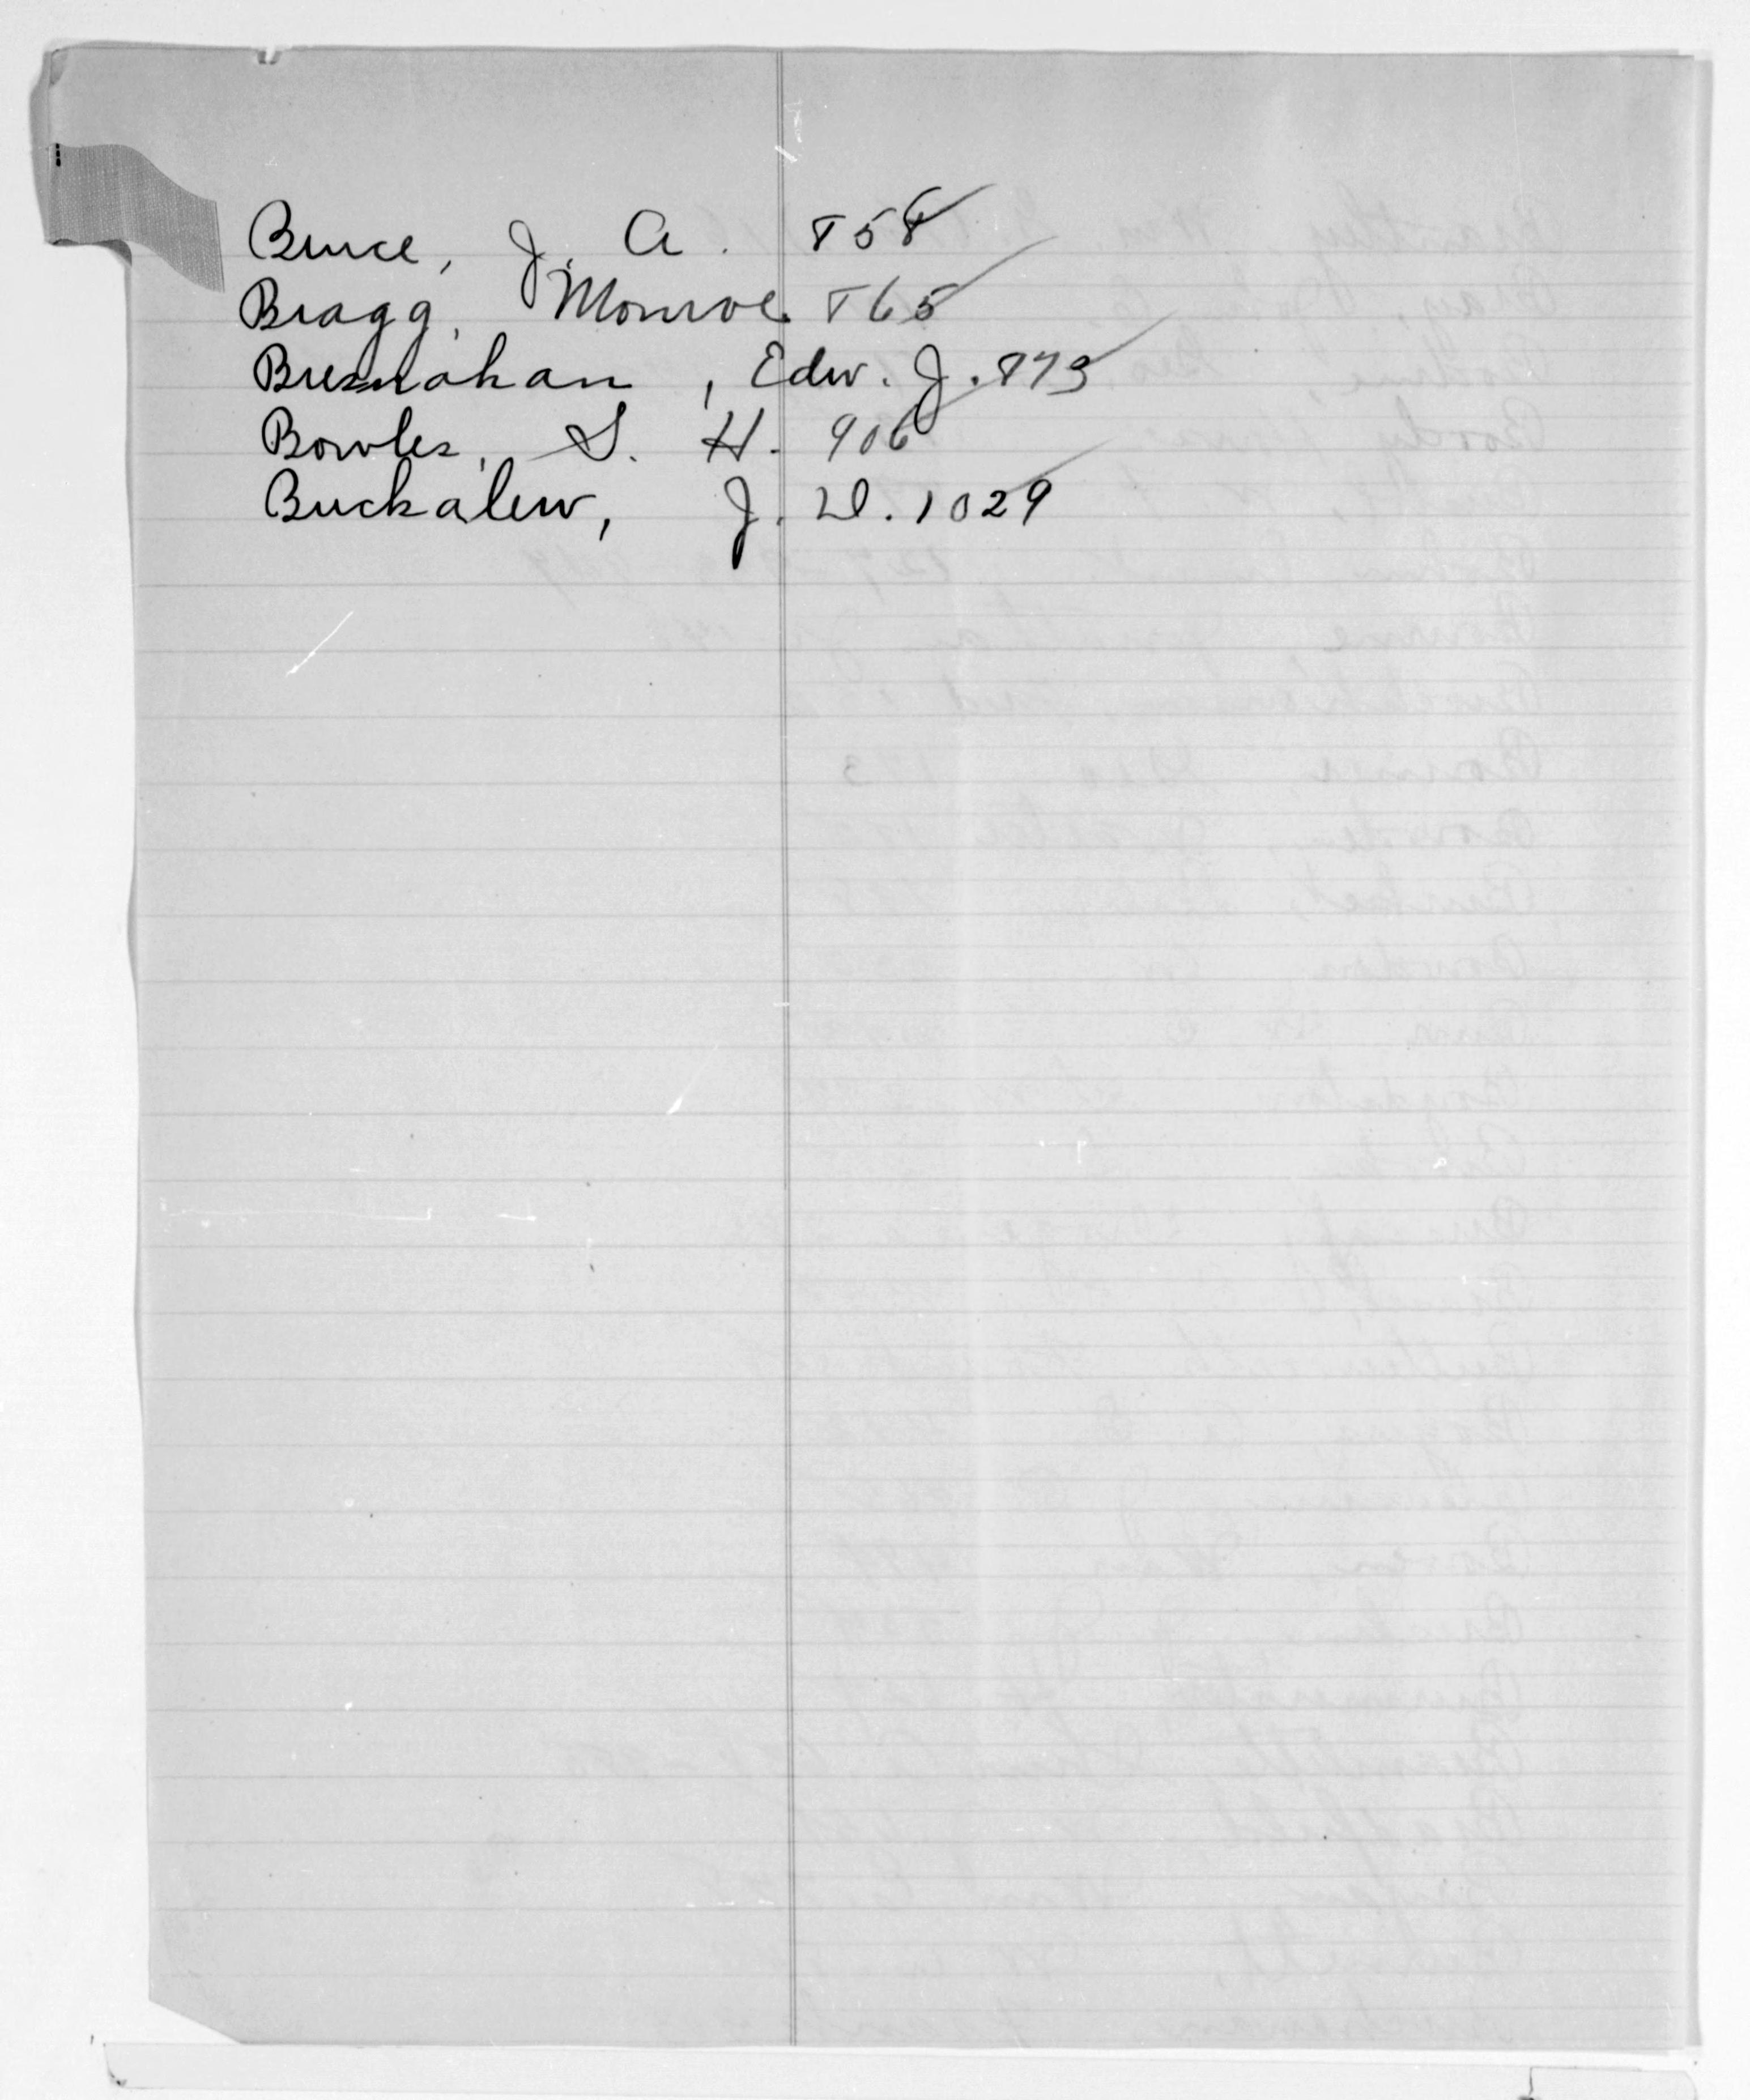 Bruce, J. A. 858
Bragg, Monroe 865
Bresnahan, Edw. J. 873
Bowles, S. H. 906
Buckalew, J. D. 1029